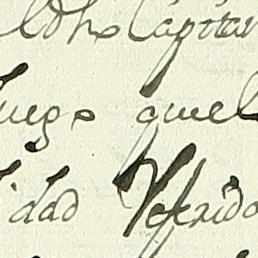 Dho Capitan
uego quel
idad Referido